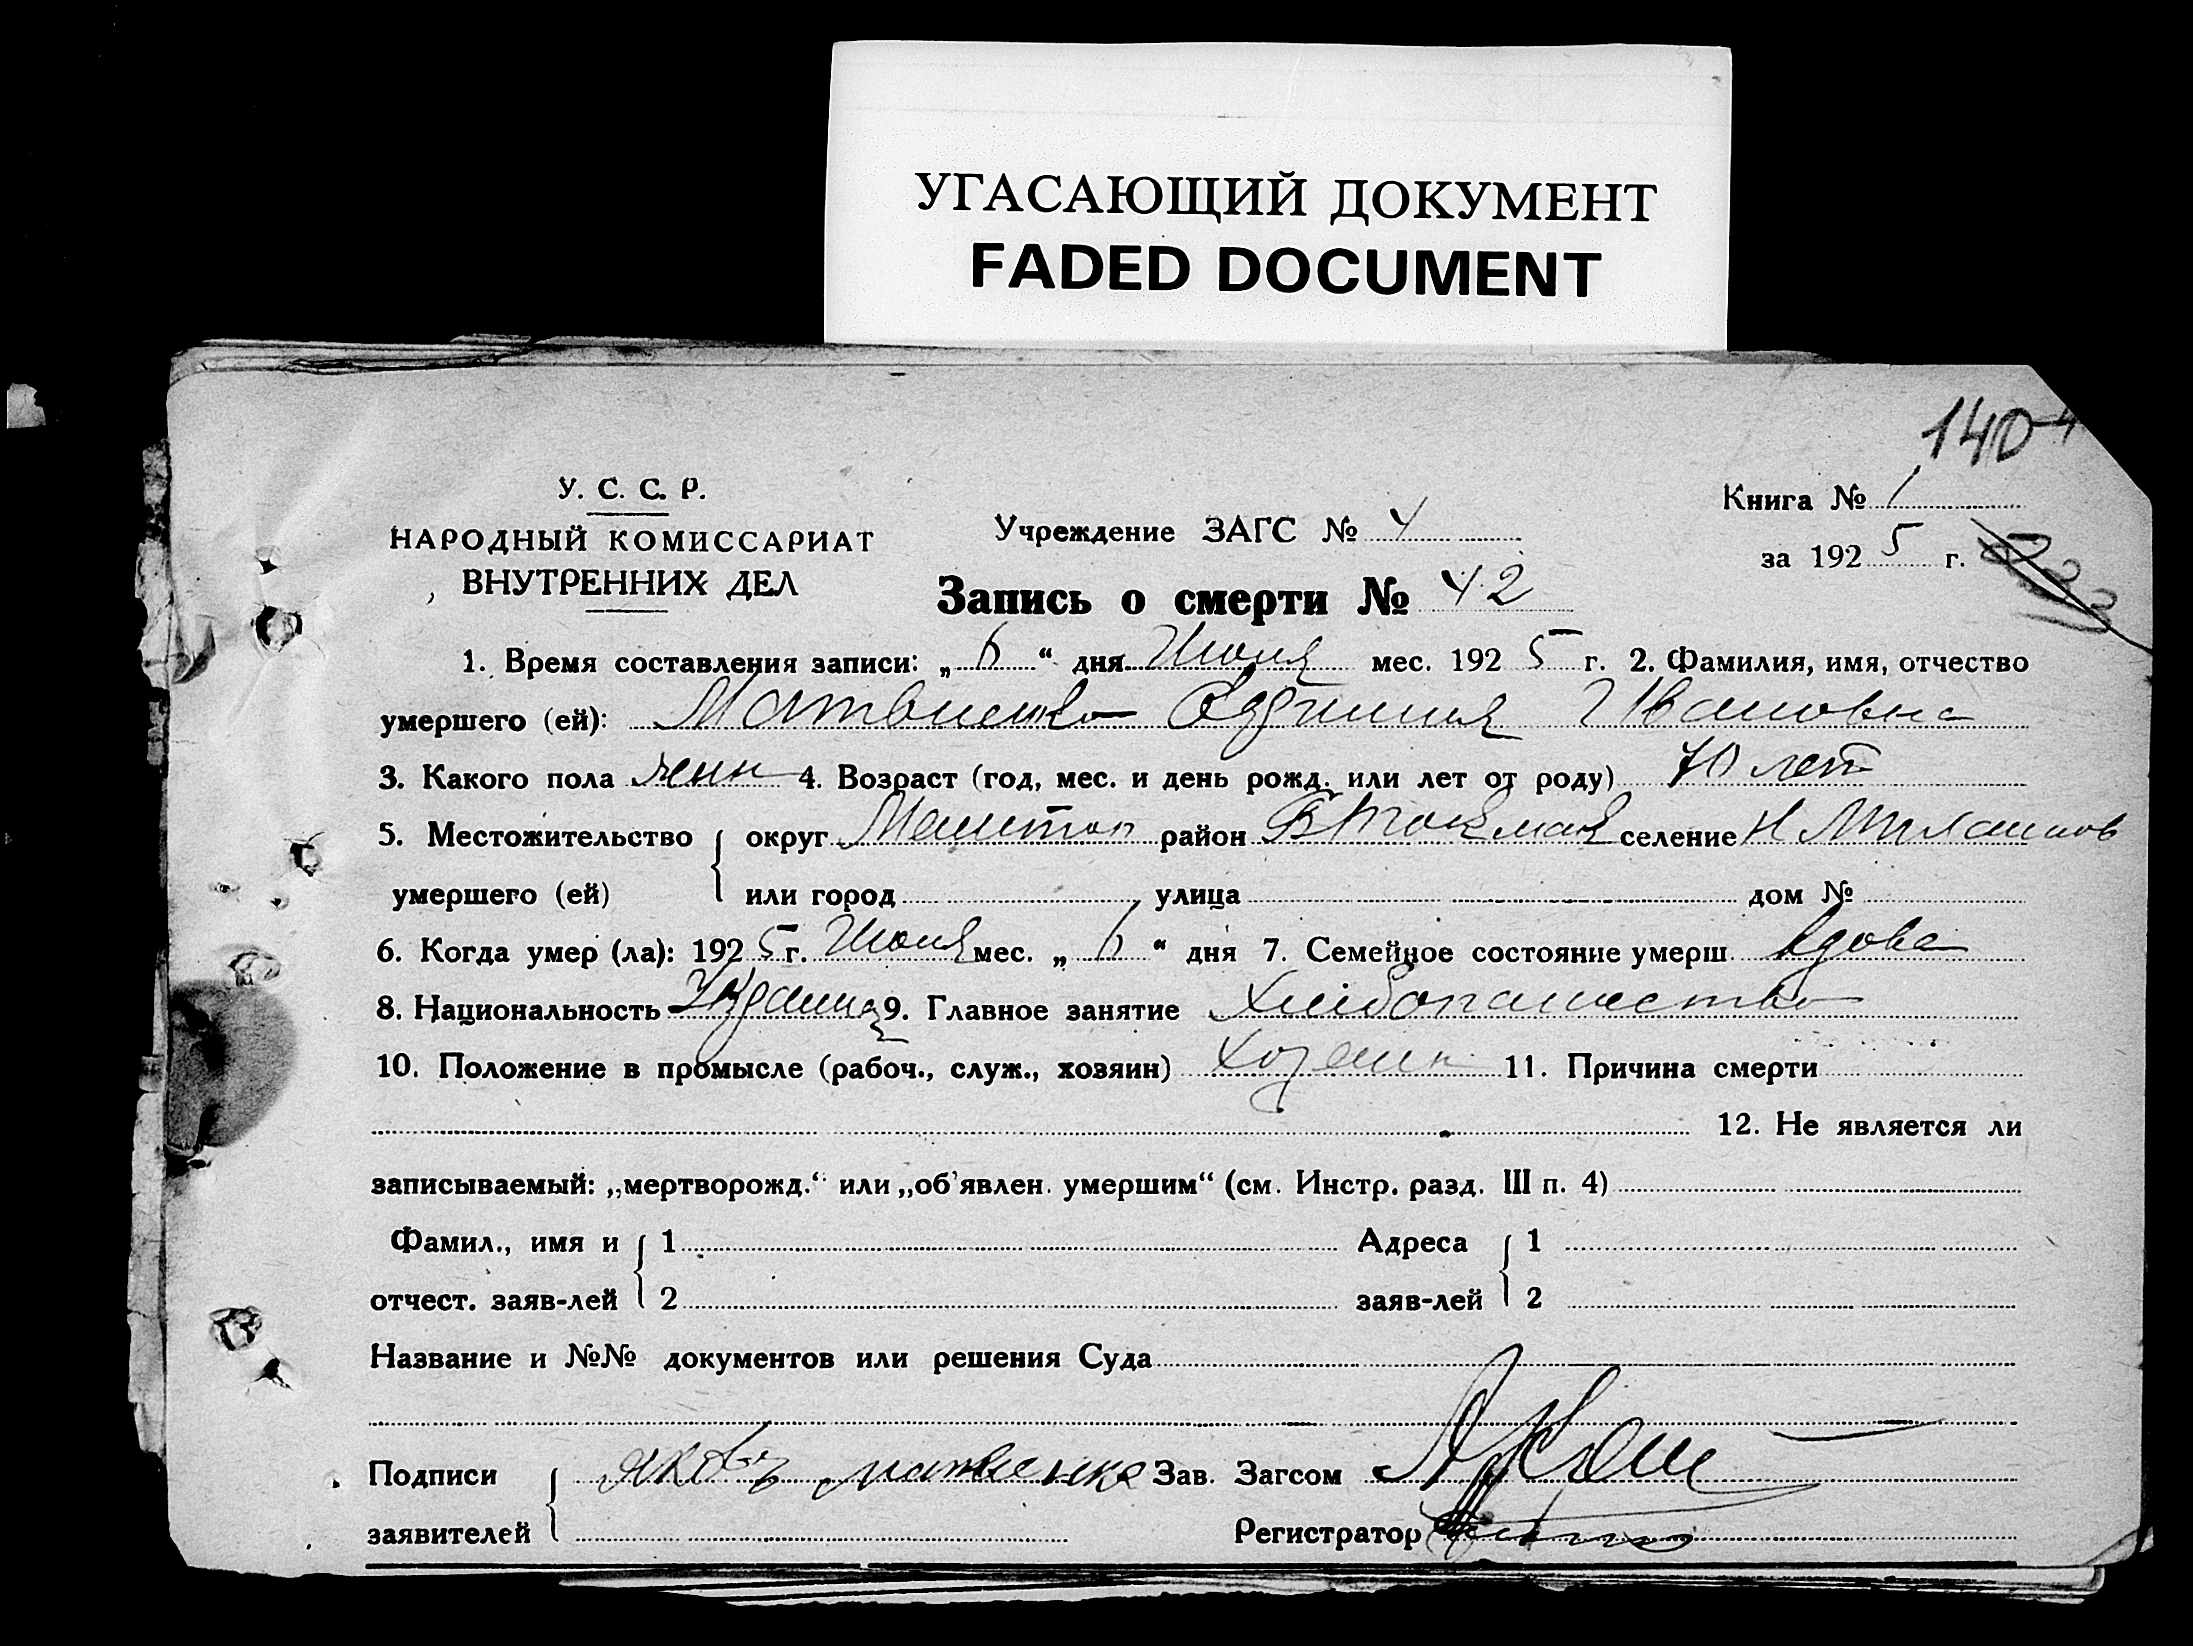 УГАСАЮЩИЙ ДОКУМЕНТ
FADED DOCUMENT
140
У. С. С. Р.
НАРОДНЫЙ КОМИССАРИАТ
ВНУТРЕННИХ ДЕЛ
Учреждение ЗАГС № 4
Книга № 1
за 1925 г.
Запись о смерти № 42
1. Время составления записи: „6“ дня Июля мес. 1925 г. 2. Фамилия, имя, отчество
умершего (ей): Матвиенко Ивановна
3. Какого пола женн 4. Возраст (год, мес. и день рожд. или лет от роду) 70 лет
5. Местожительство округ Мелитоп район ВТокмак селение Н
умершего (ей) или город улица дом №
6. Когда умер (ла): 1925 г. Июля мес. „6“ дня 7. Семейное состояние умерш. вдова
8. Национальность 9. Главное занятие Хлебопашество
10. Положение в промысле (рабоч., служ., хозяин) Хозяин 11. Причина смерти
12. Не является ли
записываемый: „мертворожд.“ или „об'явлен. умершим“ (см. Инстр. разд. III п. 4)
Фамил., имя и 1 Адреса 1
отчест. заяв-лей 2 заяв-лей 2
Название и №№ документов или решения Суда
Подписи Яковъ матвеенко Зав. Загсом
заявителей Регистратор